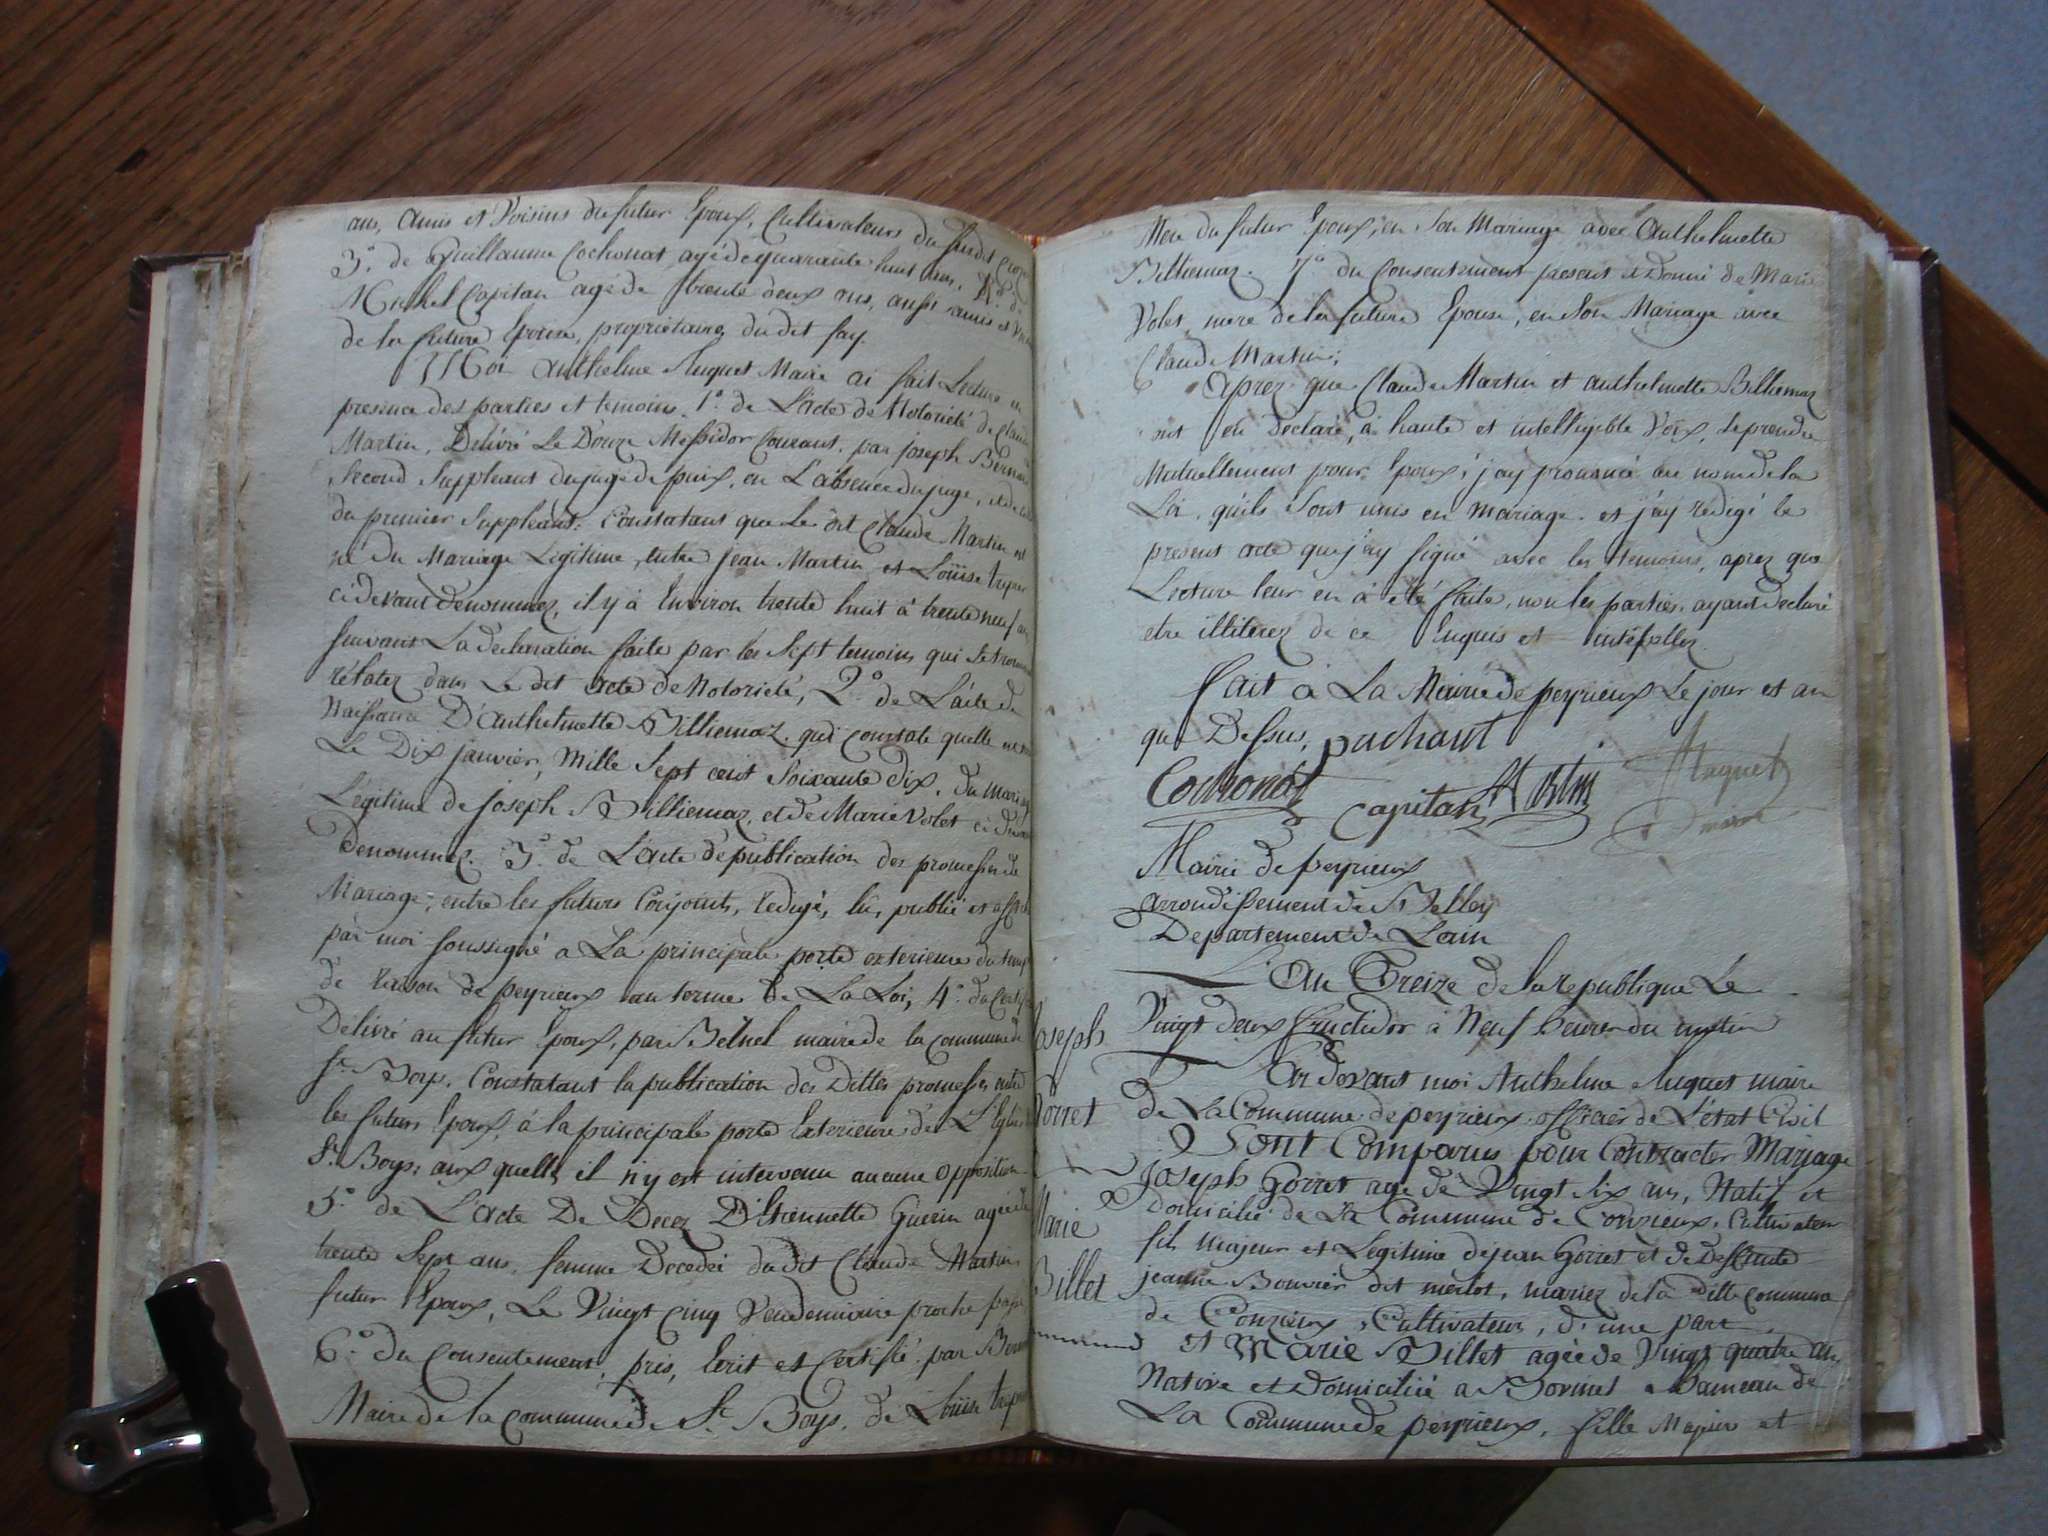 ans, amis et Voisins du futur Epoux, Cultivateurs du susdit
3°. de Guillaume Cochonat agé de quarante huit ans,
Michel Capitan agé de trente deux ans, aussi amis et
de la future Epouse, propriétaires du dit fay.
Moi Anthelme Huguet Maire ai fait Lecture en
presence des parties et temoins, 1°. de L'acte de Notorieté de Claude
Martin, Délivré Le Douze Messidor Courant, par joseph
Second Suppleant du juge de paix, en L'absence du juge, et de
du premier Suppleant: Constatant que Le dit Claude Martin est
né du Mariage Legitime, entre jean Martin et Loüise
cidevant denommez, il y à Environ trente huit à trente neuf
suivant La declaration faite par les Sept temoins qui se
rélatez dans Le dit acte de Notorieté, 2°. de L'acte de
Naissance D'anthelmette Billiemaz. qui constate quelle
Le Dix janvier, Mille Sept cent Soixante dix, du
Légitime de joseph Billiemaz, et de Marie Volet
denommez. 3°. de L'acte de publication des promesses de
Mariage, entre les futurs Conjoints, redigé, lû, publié et
par moi soussigné a La principale porte exterieure du
de raison de peyrieux au terme de La Loi; 4°. du
Délivré au futur Epoux, par maire de la commune de
St. Boys, Constatant la publication des Dittes promesses entre
les futurs Epoux, à la principale porte Exterieure de L'Eglise
St. Boys; aux quelles il n'y est intervenu aucune opposition
5°. de L'acte De Decez D'Etiennette Guerin agée de
trente Sept ans, femme Decedée du dit Claude Martin
futur Epoux, Le Vingt Cinq Vendemiaire proche
6°. du Consentement pris, Ecrit et Certifié par
Maire de la commune de St. Boys, de Loüise
Mere du futur Epoux, en Son Mariage avec Anthelmette
Billiemaz. 7°. du Consentement present et Donné de Marie
Volet, mere de la future Epouse, en Son Mariage avec
Claude Martin;
aprez que Claude Martin et anthelmette Billiemaz
ont eu declaré, à haute et intelligible Voix, se prendre
Mutuellement pour Epoux; j'ay prononcé au nom de la
Loi, qu'ils Sont unis en mariage. et j'ay redigé le
present acte que j'ay signé avec les temoins, aprez que
Lecture leur en à été faite, non les parties, ayant declaré
etre illiterez de ce Enquis et intéspellez
fait à La Mairie de peyrieux Le jour et an
que Dessus, puchant
Cochonat Capitan Huguet
maire
Mairie de peyrieux
arrondissement de Belley
Departement de Lain
L'An Treize de la republique Le
Vingt deux fructidor à Neuf heures du matin
Par Devant moi Anthelme Huguet maire
de La Commune de peyrieux, officier de L'état Civil
Sont Comparus pour Contracter Mariage
Joseph Gorret agé de Vingt Six ans, Natif et
domicilié de La Commune de Conzieux, Cultivateur
fils majeur et Legitime de jean Gorret et de Deffunte
jeanne Bouvier dit merlot, mariez de la ditte commune
de Conzieux, Cultivateurs, d'une part,
et Marie Billet agée de Vingt quatre ans
Native et Domiciliée a hameau de
La Commune de peyrieux, fille Majeur et
Joseph
Gorret
Marie
Billet